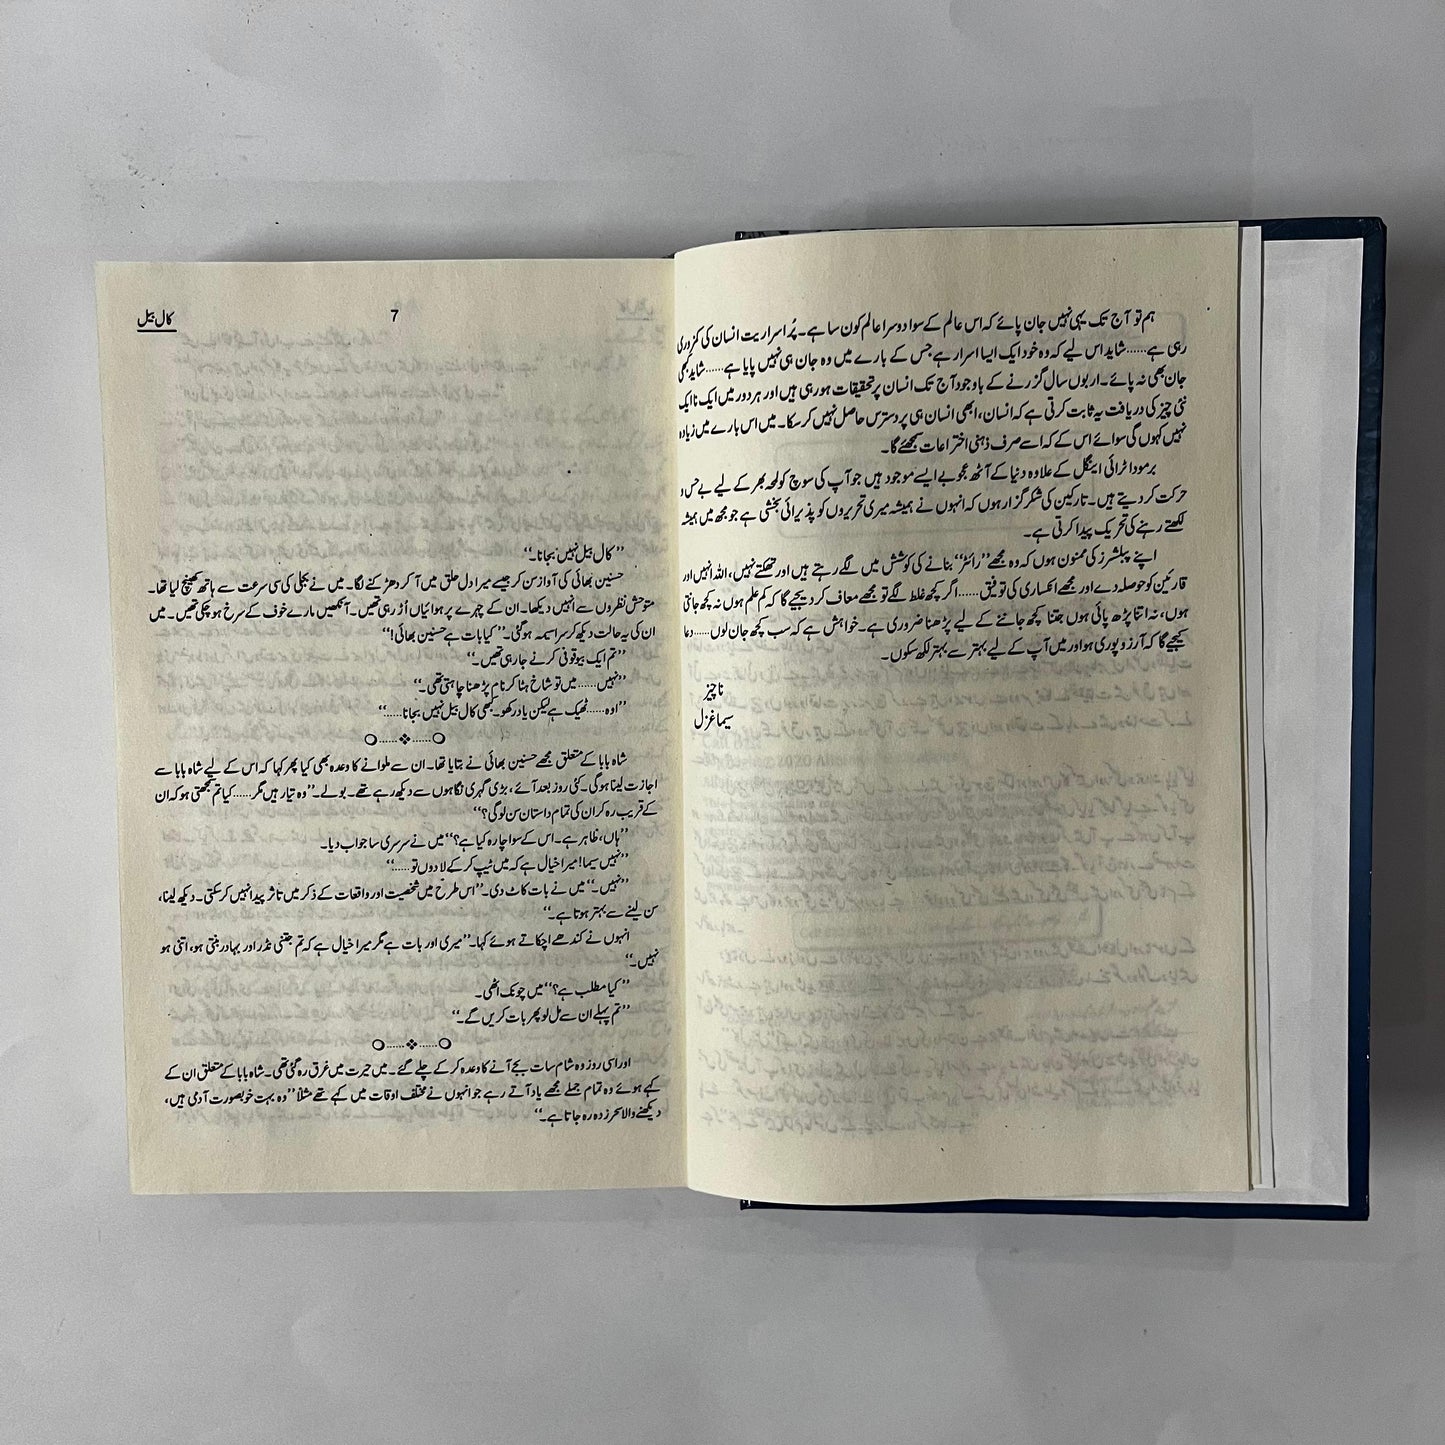 ہم تو آج تک یہی نہیں جان پائے کہ اس عالم کے سوا دوسرا عالم کون سا ہے۔ پُراسراریت انسان کی کمزوری
رہی ہے......شاید اس لیے کہ وہ خود ایک ایسا اسرار ہے جس کے بارے میں وہ جان ہی نہیں پایا ہے......شاید کبھی
جان بھی نہ پائے۔ اربوں سال گزرنے کے باوجود آج تک انسان پر تحقیقات ہو رہی ہیں اور ہر دور میں ایک نا ایک
نئی چیز کی دریافت یہ ثابت کرتی ہے کہ انسان، ابھی انسان ہی پر دسترس حاصل نہیں کر سکا۔ میں اس بارے میں زیادہ
نہیں کہوں گی سوائے اس کے کہ اسے صرف ذہنی اختراعات سمجھئے گا۔
برمودا ٹرائی اینگل کے علاوہ دنیا کے آٹھ عجوبے ایسے موجود ہیں جو آپ کی سوچ کو لمحہ بھر کے لیے بے حس و
حرکت کر دیتے ہیں۔ قارئین کی شکر گزار ہوں کہ انہوں نے ہمیشہ میری تحریروں کو پذیرائی بخشی ہے جو مجھ میں ہمیشہ
لکھتے رہنے کی تحریک پیدا کرتی ہے۔
اپنے پبلشرز کی ممنون ہوں کہ وہ مجھے ’’رائٹر‘‘ بنانے کی کوشش میں لگے رہتے ہیں اور تھکتے نہیں، اللہ انہیں اور
قارئین کو حوصلہ دے اور مجھے انکساری کی توفیق......اگر کچھ غلط لگے تو مجھے معاف کر دیجیے گا کہ کم علم ہوں نہ کچھ جانتی
ہوں، نہ اتنا پڑھ پائی ہوں جتنا کچھ جاننے کے لیے پڑھنا ضروری ہے۔ خواہش ہے کہ سب کچھ جان لوں......دعا
کیجیے گا کہ آرزو پوری ہو اور میں آپ کے لیے بہتر سے بہتر لکھ سکوں۔
ناچیز
سیما غزل
کال بیل
7
’’کال بیل نہیں بجانا۔‘‘
حسنین بھائی کی آواز سن کر جیسے میرا دل حلق میں آ کر دھڑکنے لگا۔ میں نے بجلی کی سی سرعت سے ہاتھ کھینچ لیا تھا۔
متوحش نظروں سے انہیں دیکھا۔ ان کے چہرے پر ہوائیاں اُڑ رہی تھیں۔ آنکھیں مارے خوف کے سرخ ہو چکی تھیں۔ میں
ان کی یہ حالت دیکھ کر سراسیمہ ہو گئی۔ ’’کیا بات ہے حسنین بھائی!‘‘
’’تم ایک بیوقوفی کرنے جا رہی تھیں۔‘‘
’’نہیں......میں تو شاخ ہٹا کر نام پڑھنا چاہتی تھی۔‘‘
’’اوہ......ٹھیک ہے لیکن یاد رکھو۔ کبھی کال بیل نہیں بجانا......‘‘
شاہ بابا کے متعلق مجھے حسنین بھائی نے بتایا تھا۔ ان سے ملوانے کا وعدہ بھی کیا پھر کہا کہ اس کے لیے شاہ بابا سے
اجازت لینا ہوگی۔ کئی روز بعد آئے، بڑی گہری نگاہوں سے دیکھ رہے تھے۔ بولے۔ ’’وہ تیار ہیں مگر......کیا تم سمجھتی ہو کہ ان
کے قریب رہ کر ان کی تمام داستان سن لو گی؟‘‘
’’ہاں، ظاہر ہے۔ اس کے سوا چارہ کیا ہے؟‘‘ میں نے سرسری سا جواب دیا۔
’’نہیں سیما! میرا خیال ہے کہ میں ٹیپ کر کے لا دوں تو......‘‘
’’نہیں۔‘‘ میں نے بات کاٹ دی۔ ’’اس طرح میں شخصیت اور واقعات کے ذکر میں تاثر پیدا نہیں کر سکتی۔ دیکھ لینا،
سن لینے سے بہتر ہوتا ہے۔‘‘
انہوں نے کندھے اچکاتے ہوئے کہا۔ ’’میری اور بات ہے مگر میرا خیال ہے کہ تم جتنی نڈر اور بہادر بنتی ہو، اتنی ہو
نہیں۔‘‘
’’کیا مطلب ہے؟‘‘ میں چونک اٹھی۔
’’تم پہلے ان سے مل لو پھر بات کریں گے۔‘‘
اور اسی روز وہ شام سات بجے آنے کا وعدہ کر کے چلے گئے۔ میں حیرت میں غرق رہ گئی تھی۔ شاہ بابا کے متعلق ان کے
کہے ہوئے وہ تمام جملے مجھے یاد آتے رہے جو انہوں نے مختلف اوقات میں کہے تھے مثلاً ’’وہ بہت خوبصورت آدمی ہیں،
دیکھنے والا سحر زدہ رہ جاتا ہے۔‘‘